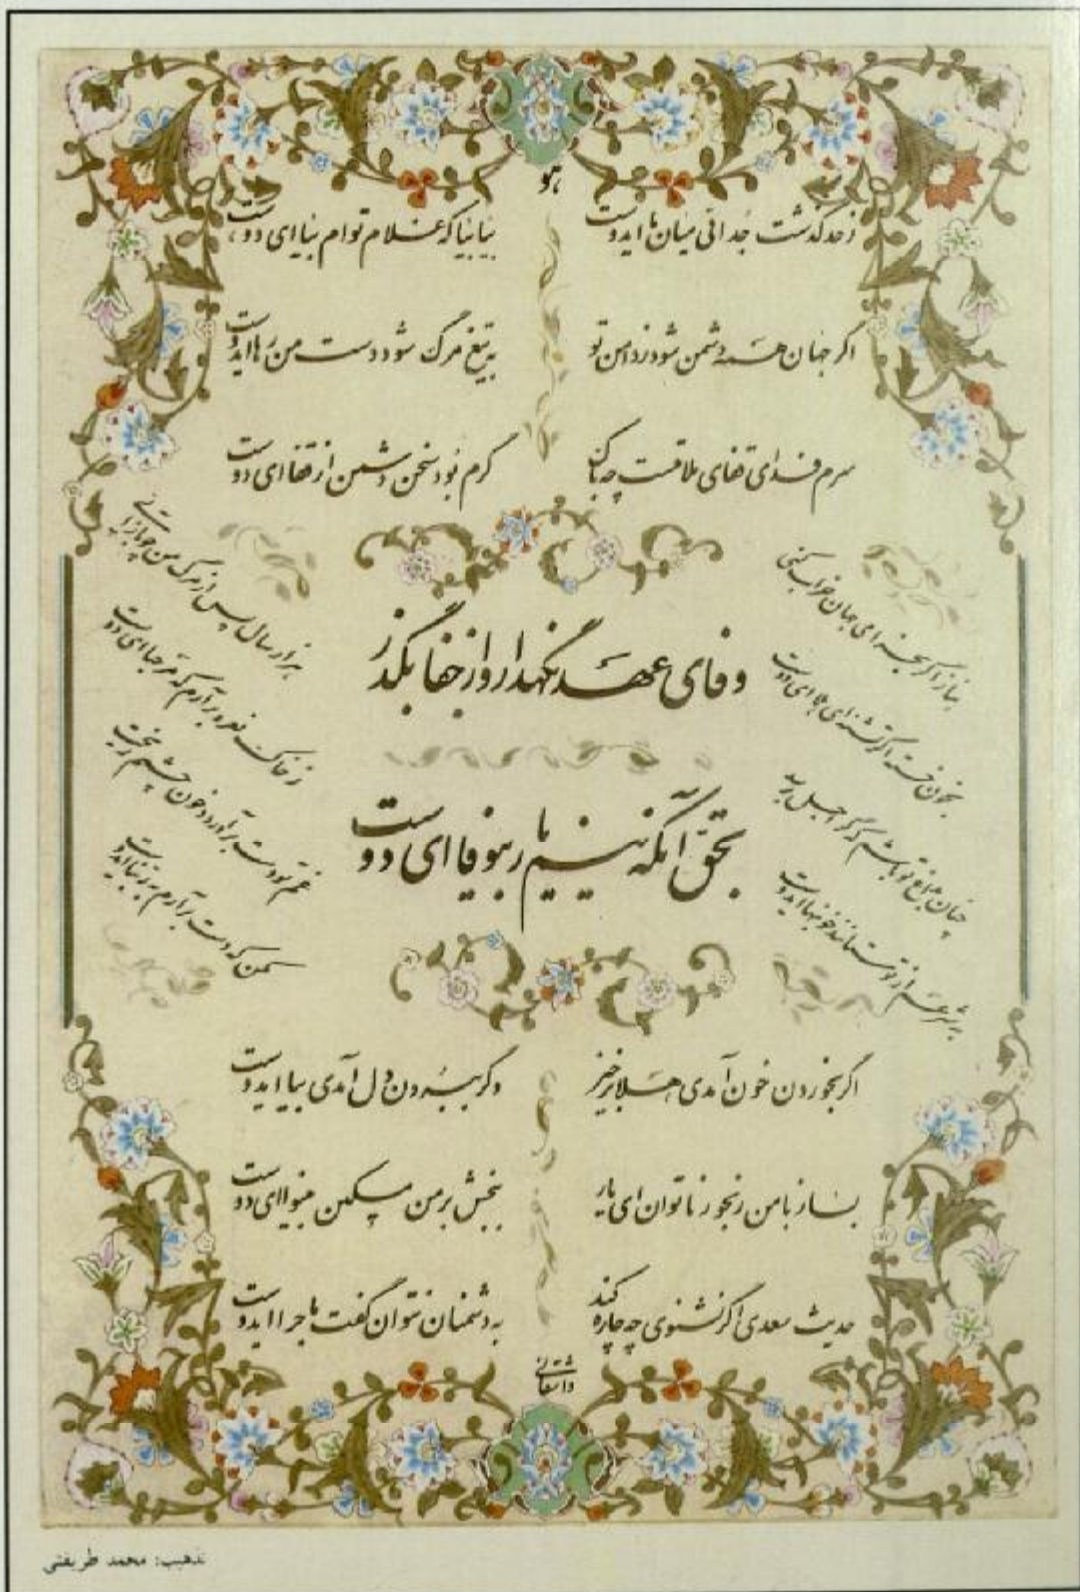 هو
ز حد گذشت جدائی میان ما ای دوست
بیا بیا که غلام توام بیا ای دوست
اگر جهان همه دشمن شود ز دامن تو
به تیغ مرگ شود دست من رها ای دوست
سرم فدای قفای ملامتست چه باک
گرم بود سخن دشمن از قفا ای دوست
بناز اگر بخرامی جهان خراب کنی
بخون خسته اگر تشنه‌ای هلا ای دوست
چنان بداغ تو باشم که گر اجل برسد
به شرعم از تو ستانند خونبها ای دوست
وفای عهد نگهدار و از جفا بگذر
بحق آنکه نیم یار بیوفا ای دوست
هزار سال پس از مرگ من چو بازآئی
ز خاک نعره برآرم که مرحبا ای دوست
غم تو دست برآورد و خون چشمم ریخت
مکن که دست برآرم به ربنا ای دوست
اگر بخوردن خون آمدی هلا برخیز
وگر ببردن دل آمدی بیا ای دوست
بساز با من رنجور ناتوان ای یار
ببخش بر من مسکین بینوا ای دوست
حدیث سعدی اگر نشنوی چه چاره کند
به دشمنان نتوان گفت ماجرا ای دوست
تذهیب: محمد طریقتی